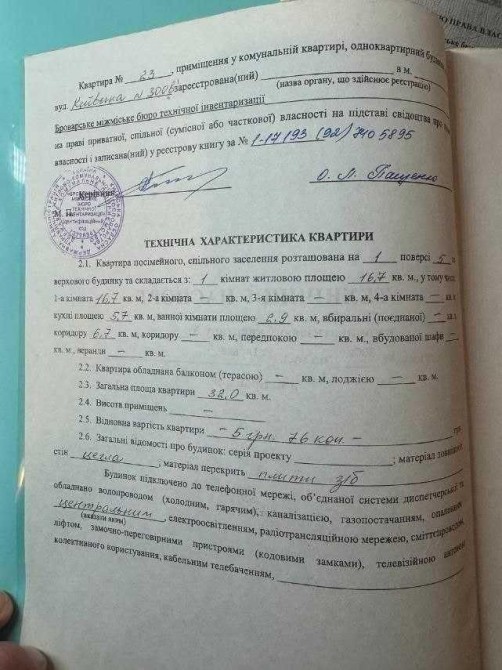 Квартира № 23, приміщення у комунальній квартирі, одноквартирний
вул. Київська № 300в зареєстрована(ний) в м.
(назва органу, що здійснює реєстрацію)
Броварське міжміське бюро технічної інвентаризації
на праві приватної, спільної (сумісної або часткової) власності на підставі свідоцтва про
власності і записана(ний) у реєстрову книгу за № 1-17193 (92) 7405895
Керівник О. М. Пащенко
М. П.
ТЕХНІЧНА ХАРАКТЕРИСТИКА КВАРТИРИ
2.1. Квартира посімейного, спільного заселення розташована на 1 поверсі 5
верхового будинку та складається з: 1 кімнат житловою площею 16,7 кв. м, у тому числі
1-а кімната 16,7 кв. м, 2-а кімната – кв. м, 3-я кімната – кв. м, 4-а кімната – кв.
кухні площею 5,7 кв. м, ванної кімнати площею 2,9 кв. м, вбиральні (поєднаної) –
коридору 6,7 кв. м, коридору – кв. м, передпокою – кв. м., вбудованої шафи –
кв. м., веранди – кв. м.
2.2. Квартира обладнана балконом (терасою) – кв. м, лоджією – кв. м.
2.3. Загальна площа квартири 32,0 кв. м.
2.4. Висота приміщень –
2.5. Відновна вартість квартири – 5 грн. 76 коп. – грн.
2.6. Загальні відомості про будинок: серія проекту ; матеріал зовнішніх
стін цегла, матеріал перекрить плити з/б
Будинок підключено до телефонної мережі, об'єднаної системи диспетчерської та
обладнано водопроводом (холодним, гарячим), каналізацією, газопостачанням, опаленням
центральним, електроосвітленням, радіотрансляційною мережею, сміттєпроводом,
(вказати яким)
ліфтом, замочно-переговорними пристроями (кодовими замками), телевізійною антеною
колективного користування, кабельним телебаченням,